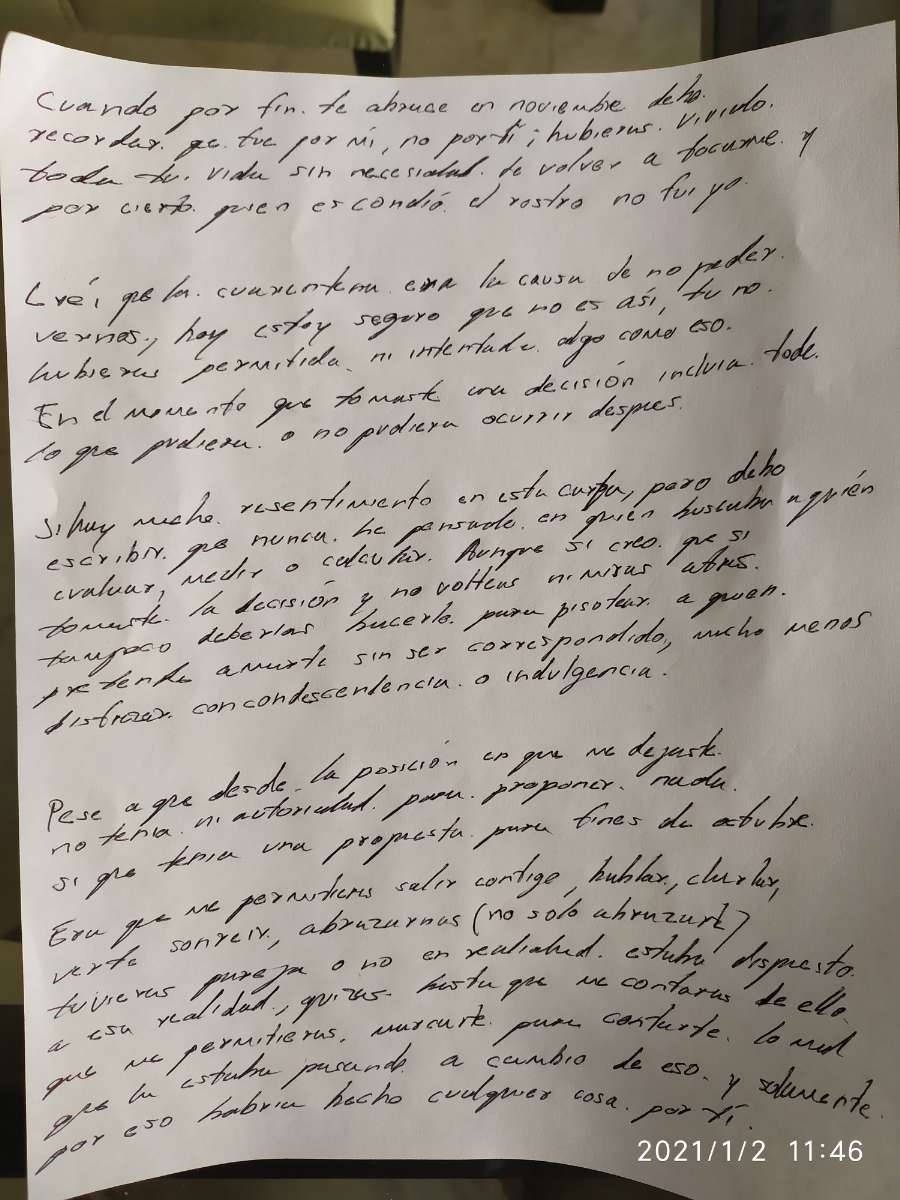 Cuando por fin te abrace en noviembre debo
recordar que fue por mi, no por ti; hubieras vivido
toda tu vida sin necesidad de volver a tocarme y
por cierto quien escondió el rostro no fui yo.
Creí que la cuarentena era la causa de no poder
vernos, hoy estoy seguro que no es así, tu no
hubieras permitido ni intentado algo como eso.
En el momento que tomaste una decisión incluia todo
lo que pudiera o no pudiera ocurrir despues.
Si hay mucho resentimiento en esta carta, pero debo
escribir que nunca he pensado en quien buscaba a quién
evaluar, medir o calcular. Aunque si creo que si
tomaste la decisión y no volteas ni miras atras
tampoco deberias hacerlo para pisotear a quien
pretende amarte sin ser correspondido, mucho menos
disfrazar con condescendencia o indulgencia.
Pese a que desde la posición en que me dejaste
no tenia ni autoridad para proponer nada
si que tenia una propuesta para fines de octubre.
Era que me permitieras salir contigo, hablar, charlar,
verte sonreir, abrazarnos (no solo abrazarte)
tuvieras pareja o no en realidad estaba dispuesto
a esa realidad, quizas hasta que me contaras de ello
que me permitieras, marcarte para contarte lo mal
que la estaba pasando a cambio de eso y solamente
por eso habria hecho cualquier cosa por ti.
2021/1/2 11:46